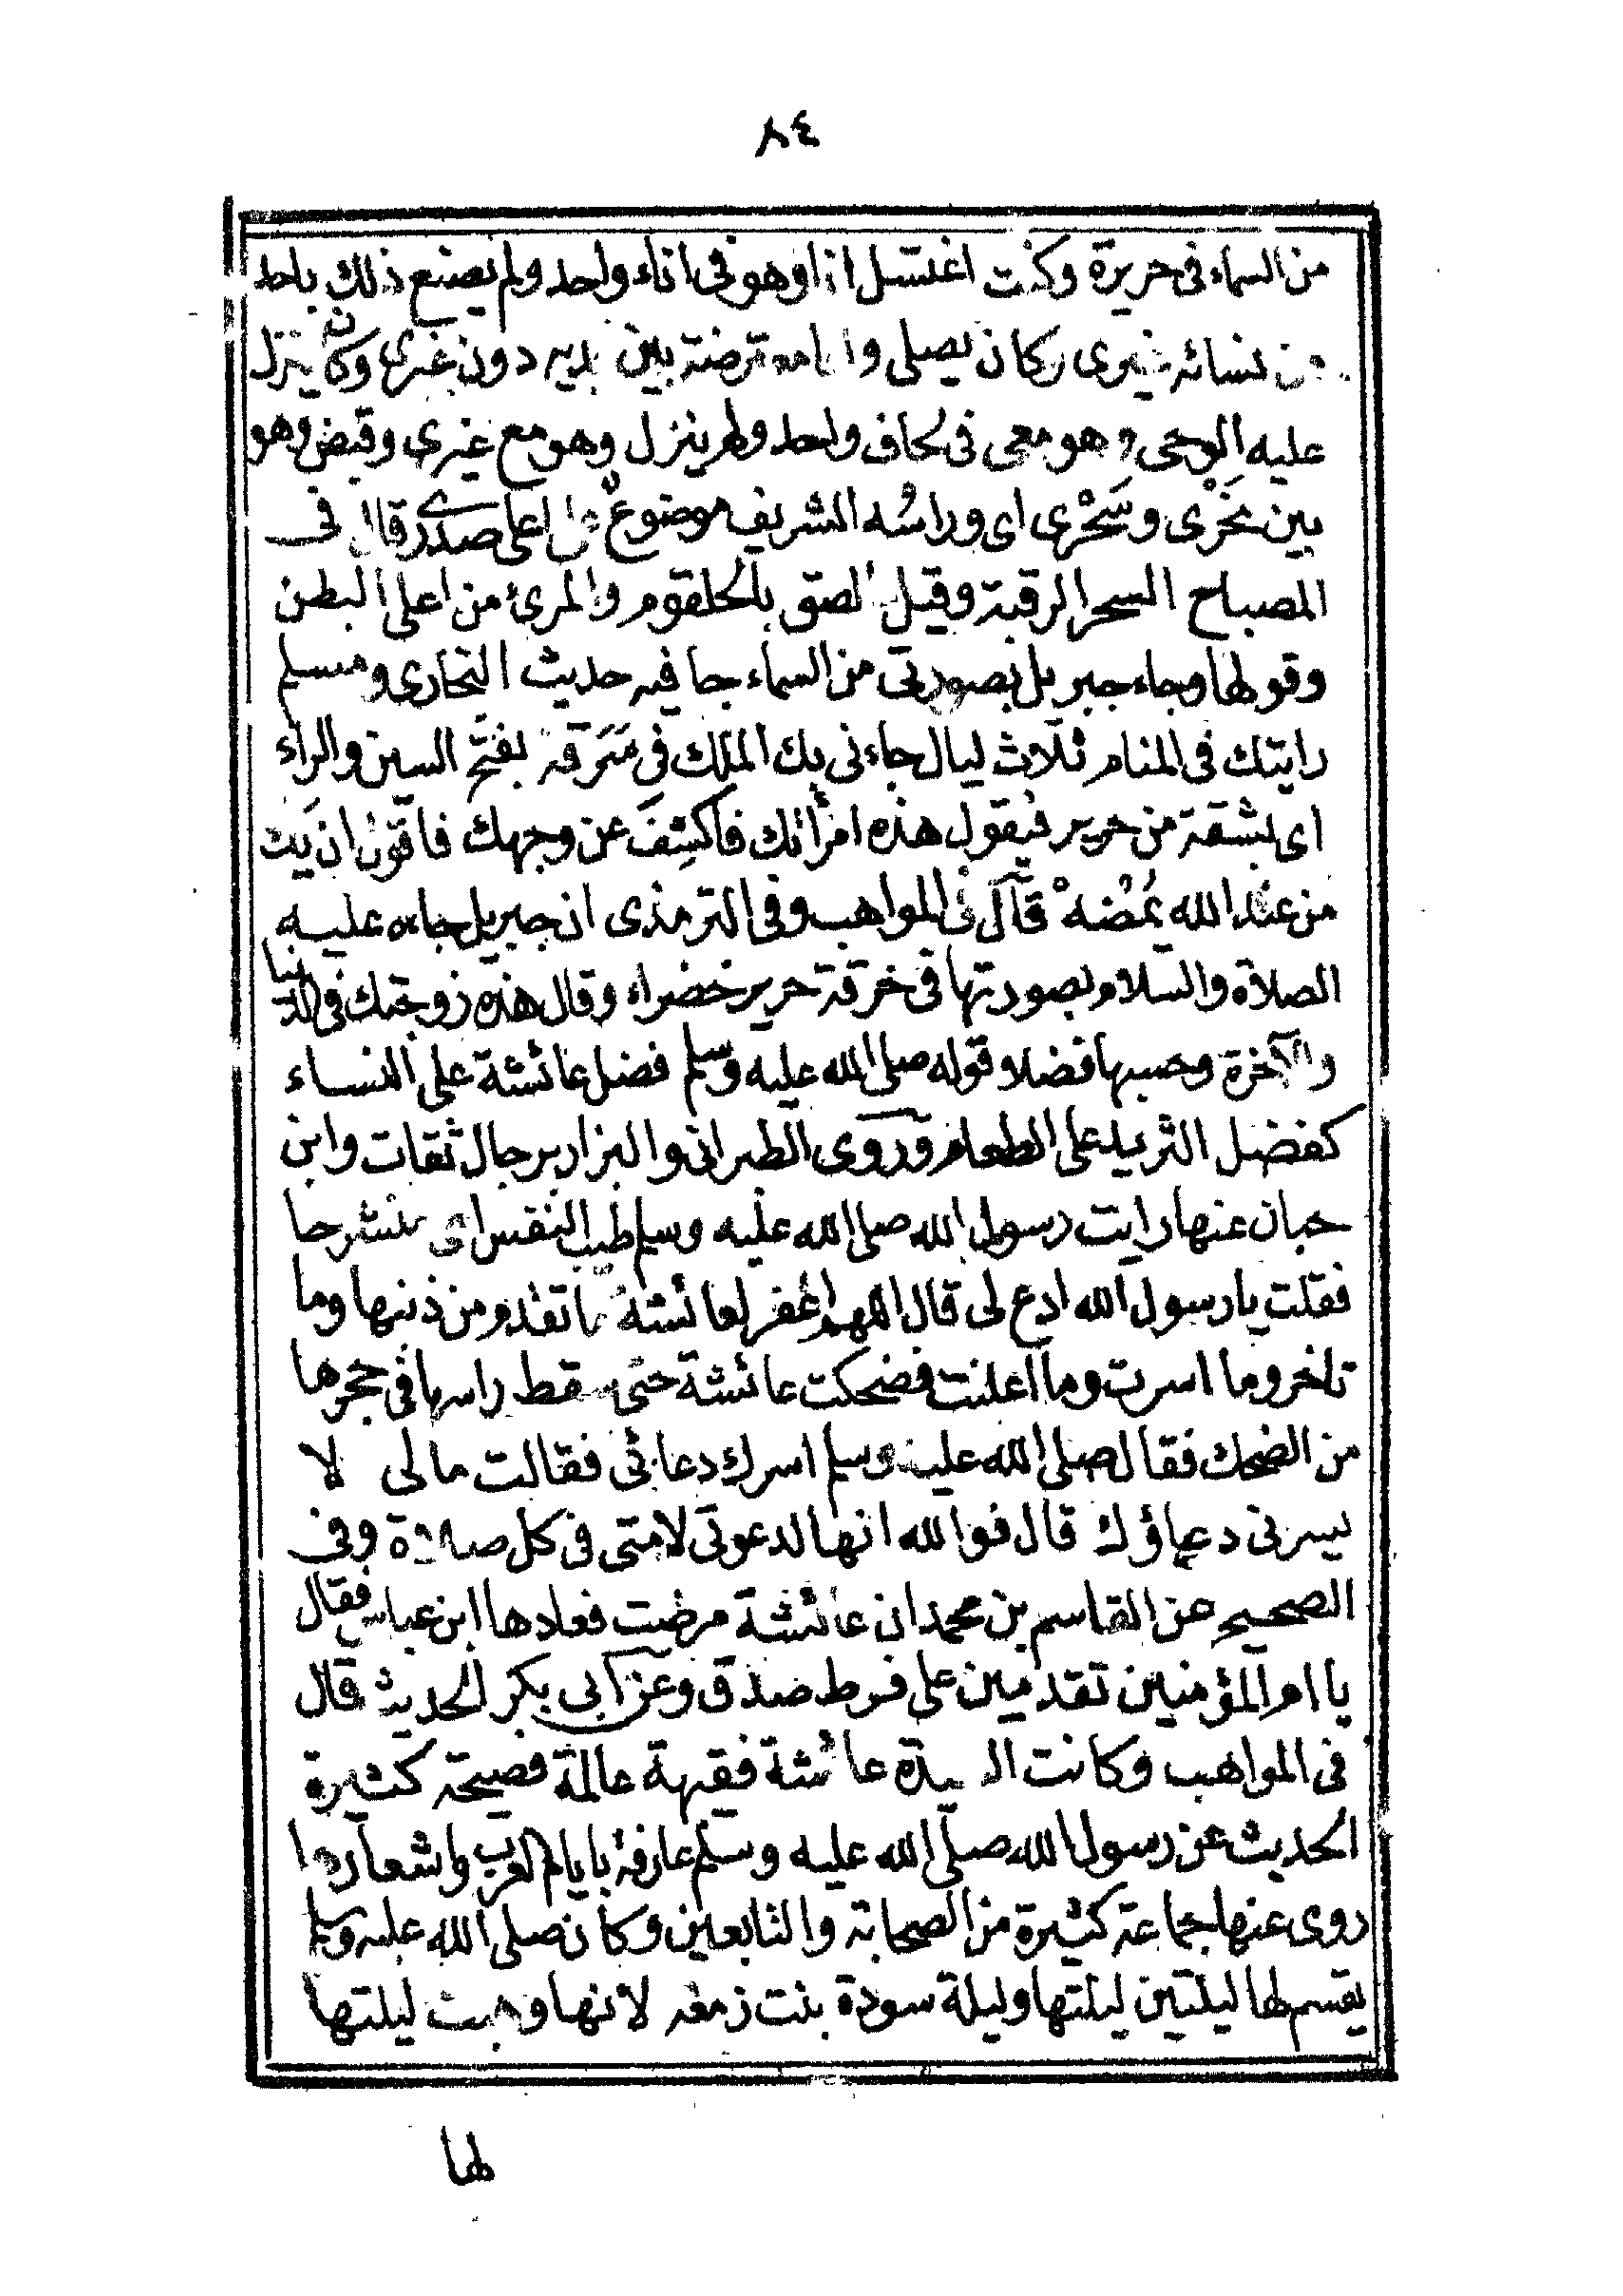 ٨٤
من السماء فى حريرة وكنت اغتسل انا وهو فى اناء واحد ولم يصنع ذلك باحد
من نسائه غيرى وكان يصلى وانا معترضة بين يديه دون غيرى وكان ينزل
عليه الوحى وهو معى فى لحاف واحد ولم ينزل وهو مع غيرى وقبض وهو
بين نَحْرى وسَحْرى اى وراسُه الشريف موضوعٌ على اعلى صدرى قال فى
المصباح السحر الرقبة وقيل الصق بالحلقوم والمرئ من اعلى البطن
وقولها وجاء جبريل بصورتى من السماء جا فيه حديث البخارى ومسلم
رايتك فى المنام ثلاث ليال جاءنى بك الملك فى سَرَقة بفتح السين والراء
اى بشقة من حرير فيقول هذه امرأتك فاكشِفَ عن وجهك فاقول ان يك
من عند الله يُمْضهْ قال فى المواهب وفى الترمذى ان جبريل جاءه عليه
الصلاة والسلام بصورتها فى خرقة حرير خضراء وقال هذه زوجتك فى الدنيا
والآخرة وحسبها فضلا قوله صلى الله عليه وسلم فضل عائشة على النساء
كفضل الثريد على الطعام وروى الطبرانى والبزار برجال ثقات وابن
حبان عنها رايت رسول الله صلى الله عليه وسلم طيب النفس اى منشرحا
فقلت يا رسول الله ادع لى قال اللهم اغفر لعائشة ما تقدم من ذنبها وما
تاخر وما اسرت وما اعلنت فضحكت عائشة حتى سقط راسها فى حجرها
من الضحك فقال صلى الله عليه وسلم اسرك دعائى فقالت مالى لا
يسرنى دعاؤك قال فوالله انها لدعوتى لامتى فى كل صلاة وفى
الصحيح عن القاسم بن محمد ان عائشة مرضت فعادها ابن عباس فقال
يا ام المؤمنين تقدمين على فرط صدق وعن ابى بكر الحديث قال
فى المواهب وكانت السيدة عائشة فقيهة عالمة فصيحة كثيرة
الحديث عن رسول الله صلى الله عليه وسلم عارفة بايام العرب واشعارها
روى عنها جماعة كثيرة من الصحابة والتابعين وكان صلى الله عليه وسلم
يقسم لها ليلتين ليلتها وليلة سودة بنت زمعه لانها وهبت ليلتها
لها